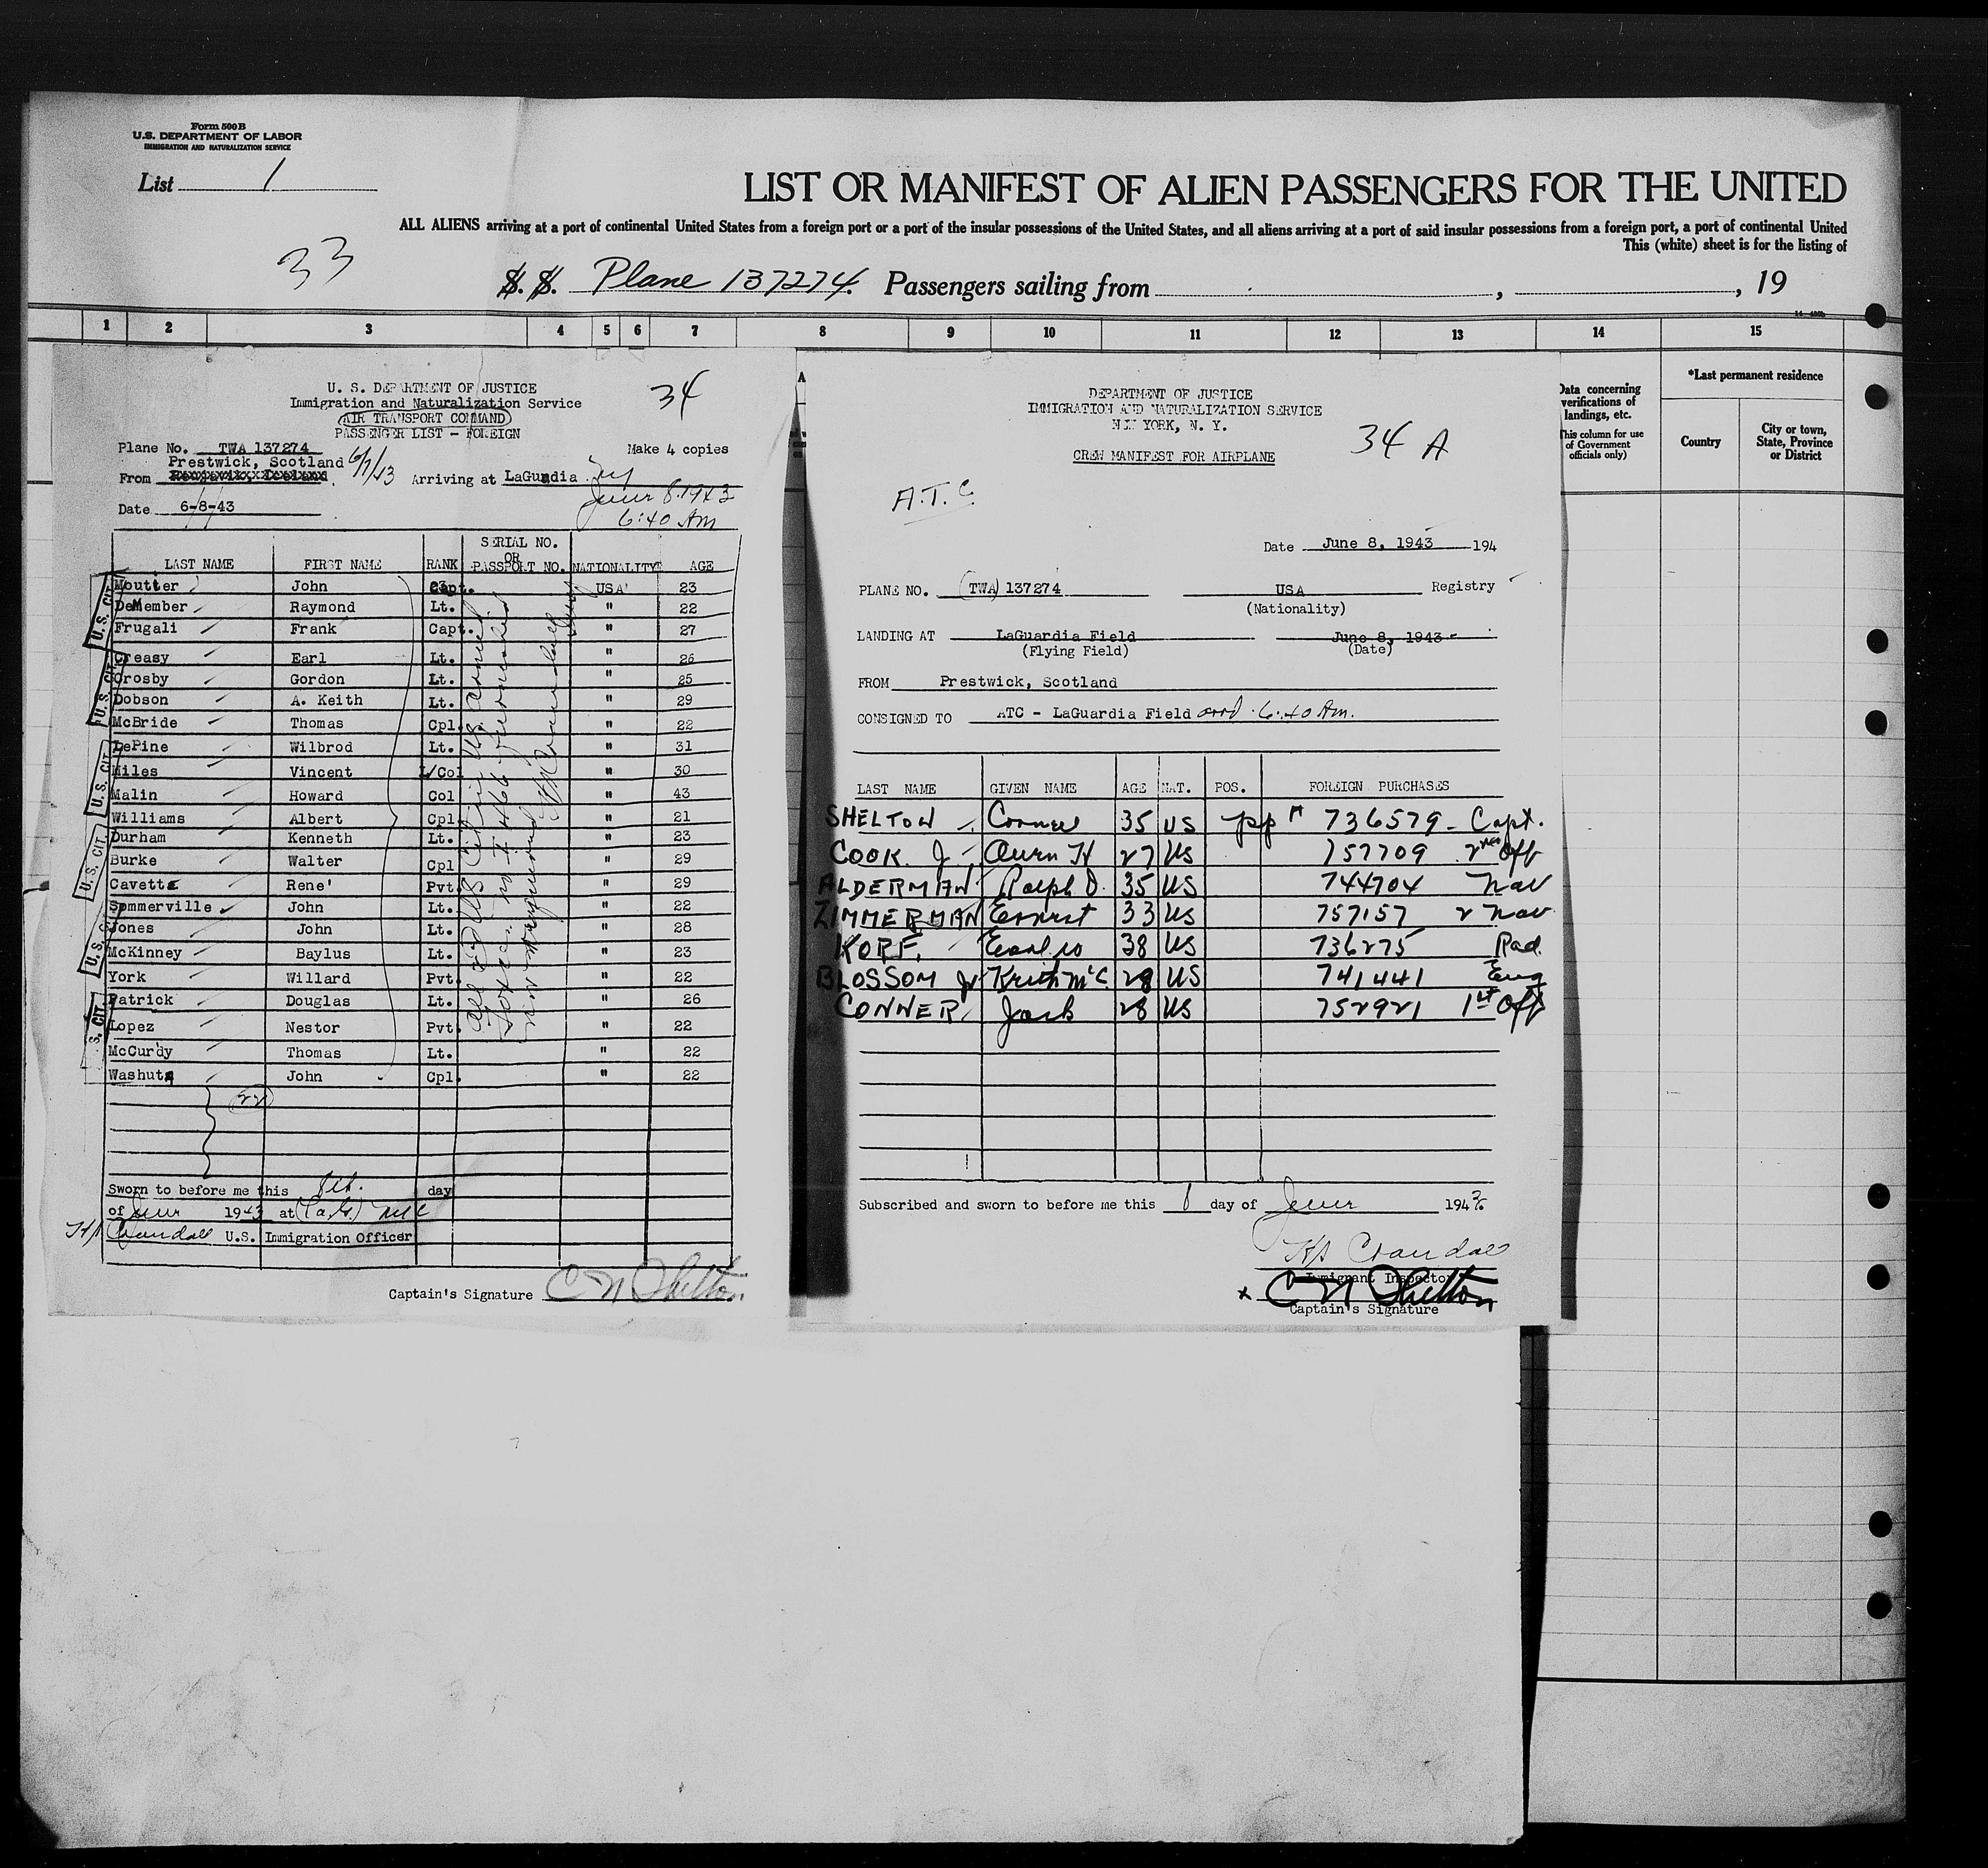 Form 500 B
U.S. DEPARTMENT OF LABOR
IMMIGRATION AND NATURALIZATION SERVICE
List 1
LIST OR MANIFEST OF ALIEN PASSENGERS FOR THE UNITED
ALL ALIENS arriving at a port of continental United States from a foreign port or a port of the insular possessions of the United States, and all aliens arriving at a port of said insular possessions from a foreign port, a port of continental United
This (white) sheet is for the listing of
33
S. S. Plane 137274. Passengers sailing from , , 19
1 2 3 4 5 6 7 8 9 10 11 12 13 14 15
U. S. DEPARTMENT OF JUSTICE
Immigration and Naturalization Service
AIR TRANSPORT COMMAND
PASSENGER LIST - FOREIGN
34
Make 4 copies
Plane No. TWA 137274
Prestwick, Scotland 6/7/43
From Arriving at LaGuardia NY
June 8 1943
Date 6-8-43
6:40 Am
LAST NAME FIRST NAME RANK SERIAL NO. OR PASSPORT NO. NATIONALITY AGE
Moutter John Capt. USA 23
DeMember Raymond Lt. " 22
Frugali Frank Capt. " 27
Creasy Earl Lt. " 26
Crosby Gordon Lt. " 25
Dobson A. Keith Lt. " 29
McBride Thomas Cpl. " 22
LePine Wilbrod Lt. " 31
Miles Vincent L/Col " 30
Malin Howard Col " 43
Williams Albert Cpl. " 21
Durham Kenneth Lt. " 23
Burke Walter Cpl " 29
Cavette Rene' Pvt. " 29
Sommerville John Lt. " 22
Jones John Lt. " 28
McKinney Baylus Lt. " 23
York Willard Pvt. " 22
Patrick Douglas Lt. " 26
Lopez Nestor Pvt. " 22
McCurdy Thomas Lt. " 22
Washuta John Cpl. " 22
U.S. CIT.
U.S. CIT.
U.S. CIT.
U.S. CIT.
U.S. CIT.
S. CIT.
22
Sworn to before me this 8th. day
of June 1943 at
Crandall U.S. Immigration Officer
Captain's Signature C N Shelton
DEPARTMENT OF JUSTICE
IMMIGRATION AND NATURALIZATION SERVICE
NEW YORK, N. Y.
34 A
CREW MANIFEST FOR AIRPLANE
A.T.C.
Date June 8, 1943 194
PLANE NO. (TWA) 137274 USA Registry
(Nationality)
LANDING AT LaGuardia Field June 8, 1943
(Flying Field) (Date)
FROM Prestwick, Scotland
CONSIGNED TO ATC - LaGuardia Field arrd. 6:40 Am.
LAST NAME GIVEN NAME AGE NAT. POS. FOREIGN PURCHASES
SHELTON 35 US pp # 736579 - Capt.
COOK Jr 27 US 757709 2nd Off
ALDERMAN Ralph O. 35 US 744704 Nav
ZIMMERMAN Ernest 33 US 757157 2 Nav
KOPF, Earl W 38 US 736275 Rad.
BLOSSOM Jr Keith McC 28 US 741441 Eng
CONNER Jack 28 US 752921 1st Off
Subscribed and sworn to before me this 8 day of June 1943.
Crandall
Immigrant Inspector
x C N Shelton
Captain's Signature
Data concerning
verifications of
landings, etc.
This column for use
of Government
officials only)
*Last permanent residence
Country
City or town,
State, Province
or District